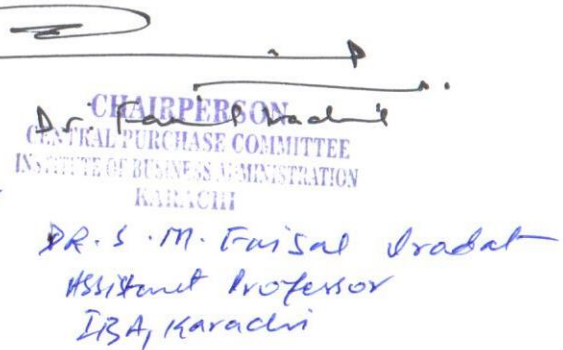 CHAIRPERSON
Dr.
CENTRAL PURCHASE COMMITTEE
INSTITUTE OF BUSINESS ADMINISTRATION
KARACHI
DR. S. M. Faisal Iradat
Assistant Professor
IBA, Karachi